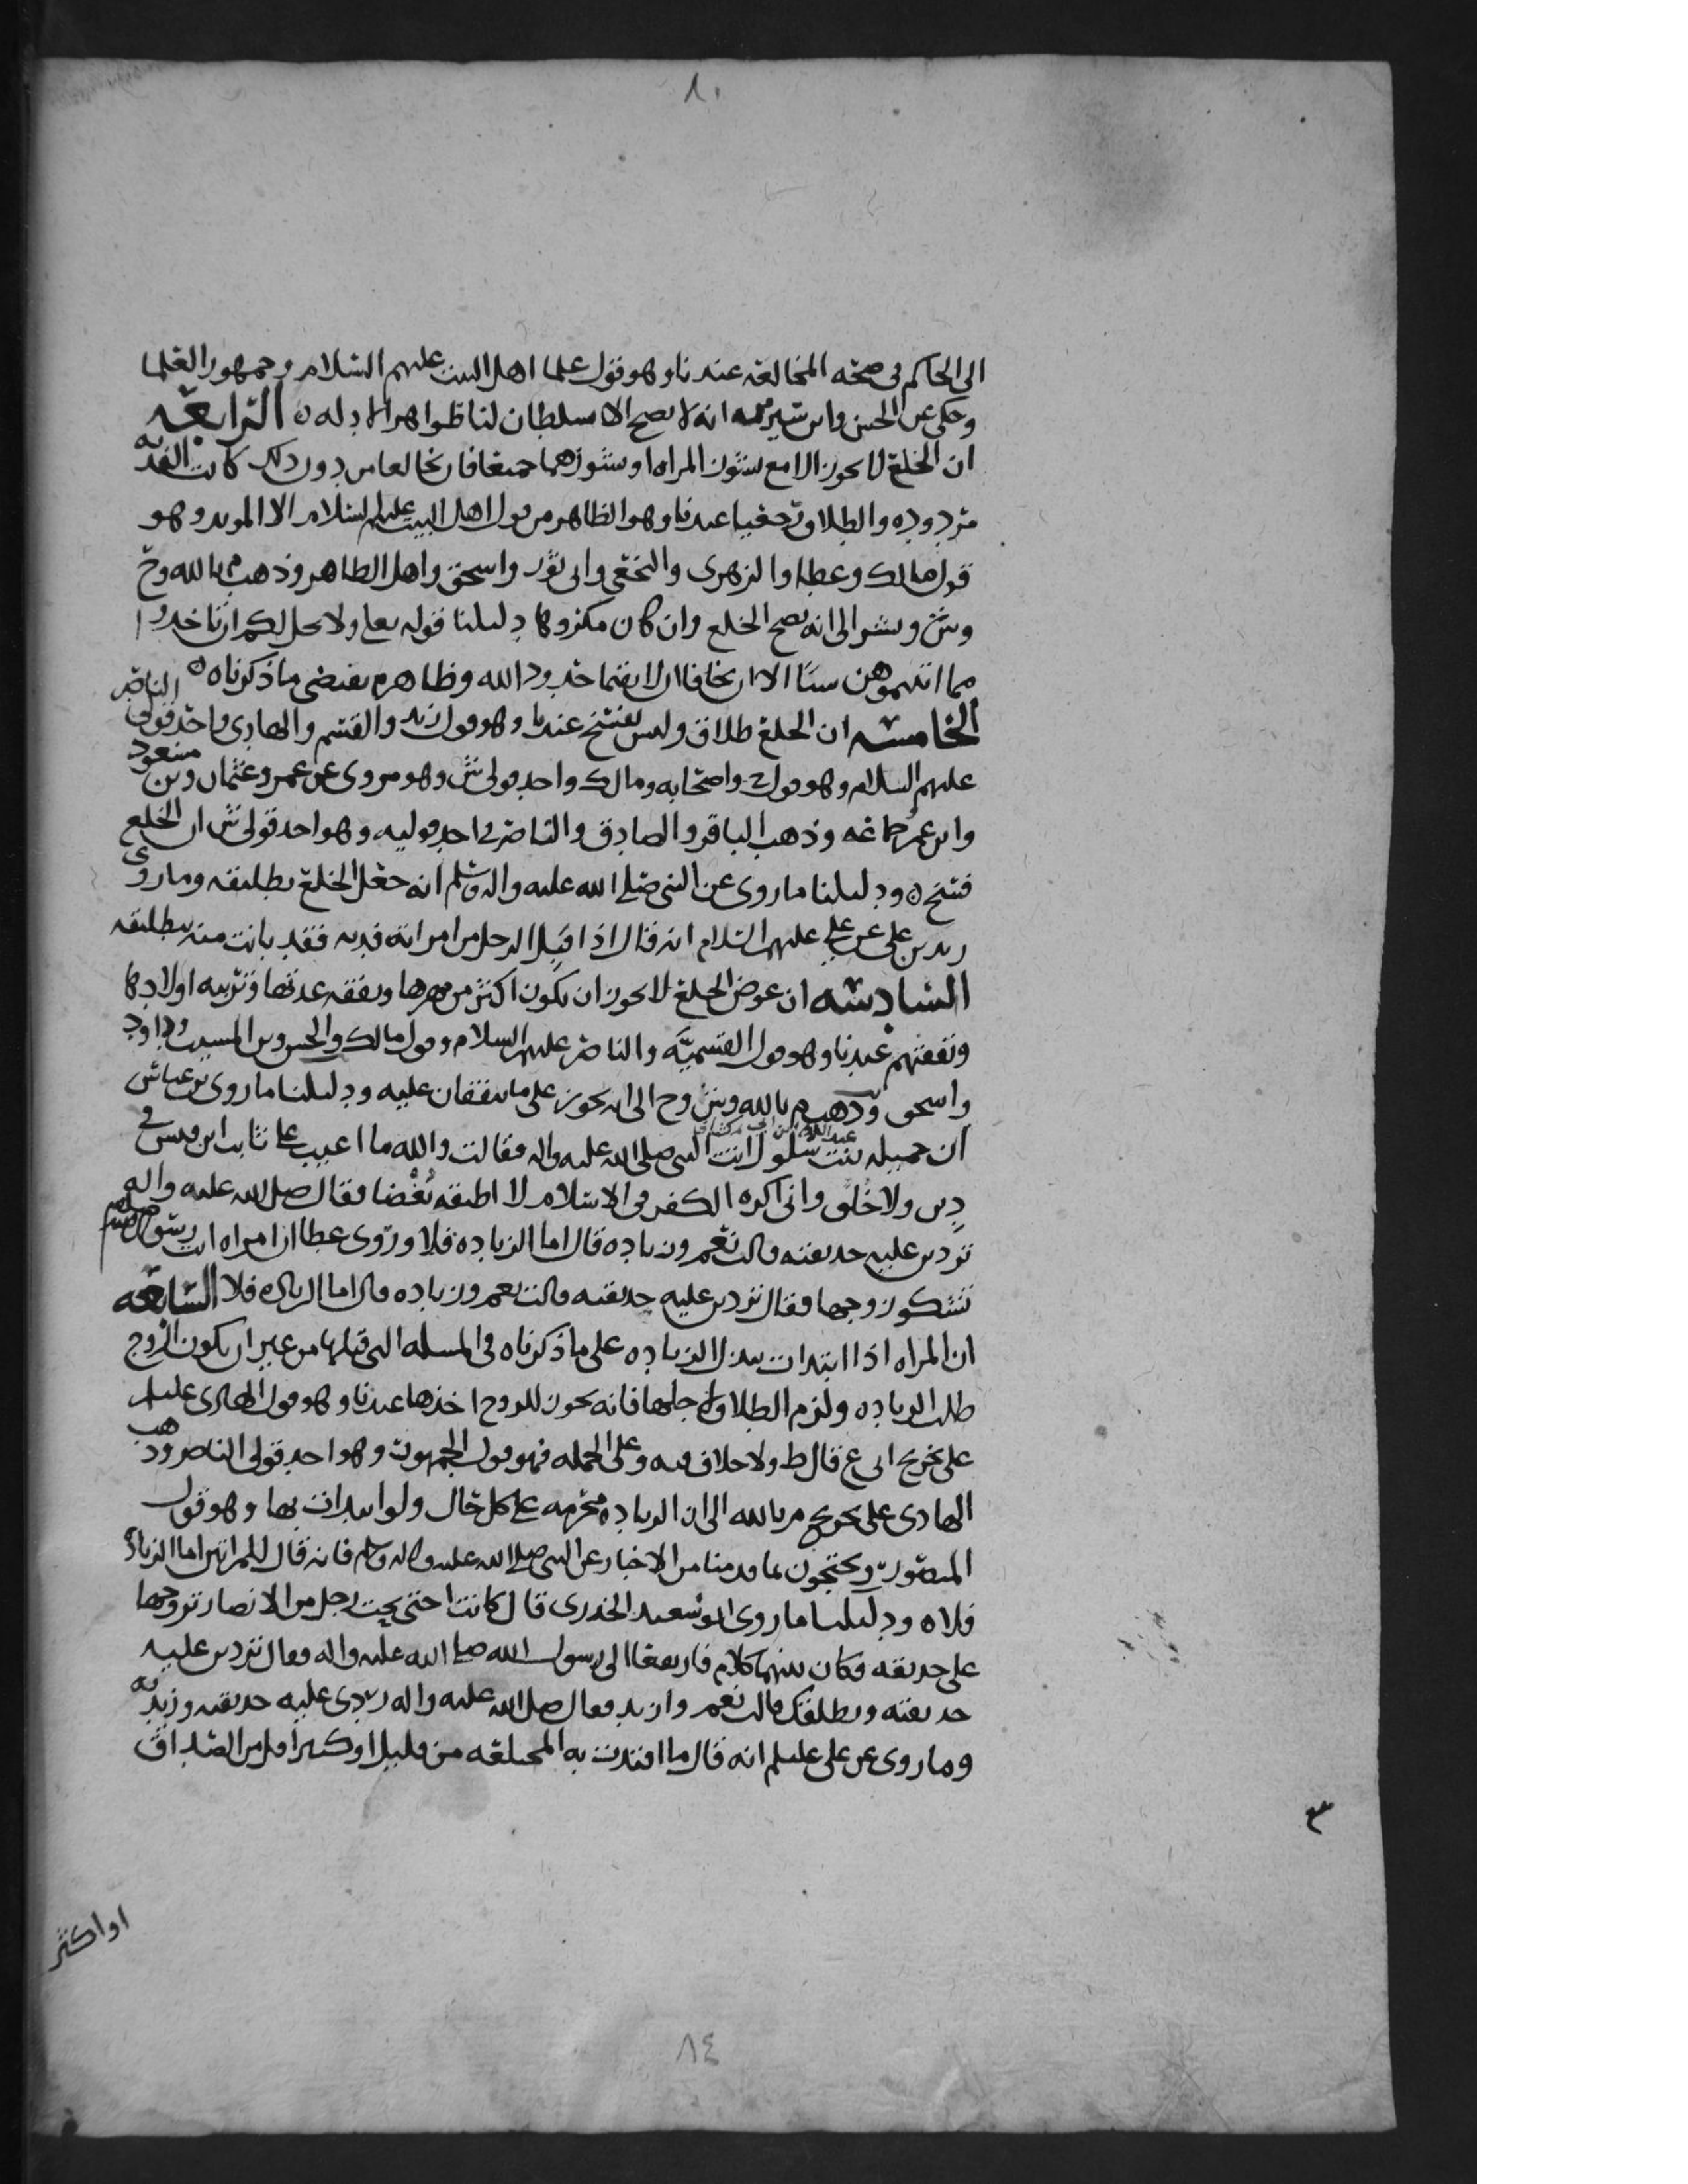 ٨٠
الى الحاكم في صحه المخالعه عندنا وهو قول علما اهل البيت عليهم السلام وجمهور العلما
وحكي عن الحسن وابن سيرين انه لا يصح الا بسلطان لنا ظواهر الادله ه الرابعه
ان الخلع لا يجوز الا مع نشوز المراه او نشوزهما جميعا فان تخالعا من دون ذلك كانت الفديه
مردوده والطلاق رجعيا عندنا وهو الظاهر من قول اهل البيت عليهم السلام الا المويد وهو
قول مالك وعطا والزهرى والنخعي وابي ثور واسحق واهل الظاهر وذهب م بالله وح
وش ... الى انه يصح الخلع وان كان مكروها دليلنا قوله تعالى ولا يحل لكم ان تاخذوا
مما اتيتموهن شيئا الا ان يخافا ان لا يقيما حدود الله وظاهره يقتضي ما ذكرناه ه
الخامسه ان الخلع طلاق وليس بفسخ عندنا وهو قول زيد والقسم والهادي واحد قولي الناصر
عليهم السلام وهو قول ح واصحابه ومالك واحد قولي ش وهو مروى عن عمر وعثمان وبن مسعود
وابن عمر وجماعه وذهب الباقر والصادق والناصر في احد قوليه وهو احد قولي ش ان الخلع
فسخ ه ودليلنا ما روى عن النبي صلى الله عليه واله وسلم انه جعل الخلع تطليقه وما روى
زيد بن علي عن علي عليهم السلام انه قال اذا قبل الرجل من امراته فديه فقد بانت منه بتطليقه
السادسه ان عوض الخلع لا يجوز ان يكون اكثر من مهرها ونفقه عدتها وتربيه اولادها
ونفقتهم عندنا وهو قول القسميه والناصر عليهم السلام وقول مالك والحسن وبن المسيب وداود
واسحق وذهب م بالله وش وح الى انه يجوز على ما يتفقان عليه ودليلنا ما روى بن عباس
ان جميله بنت عبدالله بن ابي سلول اتت النبي صلى الله عليه واله فقالت والله ما اعيب على ثابت ابن قيس في
دين ولا خلق واني اكره الكفر في الاسلام لا اطيقه بغضا فقال صلى الله عليه واله
تردين عليه حديقته قالت نعم وزياده قال اما الزياده فلا وروى عطا ان امراه اتت رسول الله
تشكو زوجها فقال تردين عليه حديقته قالت نعم وزياده قال اما الزياده فلا السابعه
ان المراه اذا ابتدات ببذل الزياده على ما ذكرناه في المسله التي قبلها من غير ان يكون الزوج
طلب الزياده ولزم الطلاق لاجلها فانه يجوز للزوج اخذها عندنا وهو قول الهادي عليلم
على تخريج ابي ع قال ط ولا خلاف فيه وعلى الجمله فهو قول الجمهور وهو احد قولي الناصر وذهب
الهادى على تخريج م بالله الى ان الزياده محرمه على كل حال ولو ابتدات بها وهو قول
المنصور ويحتجون بما قدمنا من الاخبار عن النبي صلى الله عليه واله وسلم فانه قال للمراتين اما الزياده
فلا ه ودليلنا ما روى ابو سعيد الخدرى قال كانت اختي تحت رجل من الانصار تزوجها
على حديقه فكان بينهما كلام فارتفعا الى رسول الله صلى الله عليه واله فقال تردين عليه
حديقته ويطلقك قالت نعم وازيد فقال صلى الله عليه واله ردي عليه حديقته وزيديه
وما روى عن علي عليلم انه قال ما افتدت به المختلعه من قليل او كثير اقل من الصداق
٣
او اكثر
٨٤